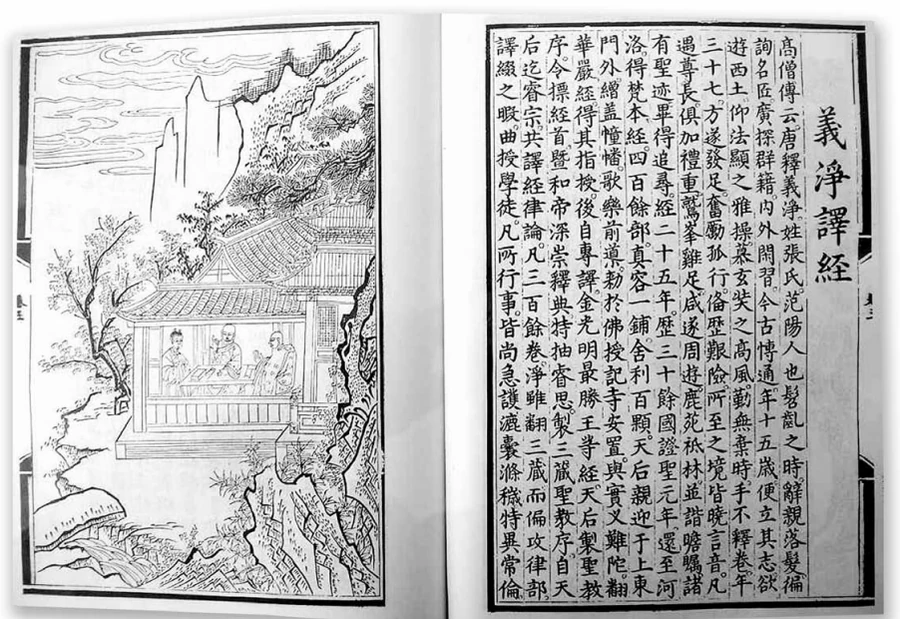 義淨譯經
高僧傳云。唐釋義淨。姓張氏。范陽人也。髫齔之時。辭親落髮。徧
詢名匠。廣探群籍。內外閑習。今古博通。年十五歲便立其志。欲
遊西土。仰法顯之雅操。慕玄奘之高風。勤無棄時。手不釋卷。年
三十七。方遂發足。奮勵孤行。俻歷艱險。所至之境皆曉言音。凡
遇尊長。俱加禮重。鷲峯雞足咸遂周遊。鹿苑祇林並諧瞻矚。諸
有聖迹畢得追尋。經二十五年。歷三十餘國。證聖元年。還至河
洛。得梵本經四百餘部。真容一鋪。舍利百顆。天后親迎于上東
門外。繒盖幢幡。歌樂前導。勅於佛授記寺安置。與實叉難陀。翻
華嚴經。得其指授。後自專譯。金光明最勝王等經。天后製聖教
序。令摽經首。暨和帝深崇釋典。特抽睿思。製三藏聖教序。自天
后迄睿宗。共譯經律論。凡三百餘卷。淨雖翻三藏。而偏攻律部。
譯綴之暇。曲授學徒。凡所行事。皆尚急護。漉囊滌穢特異常倫